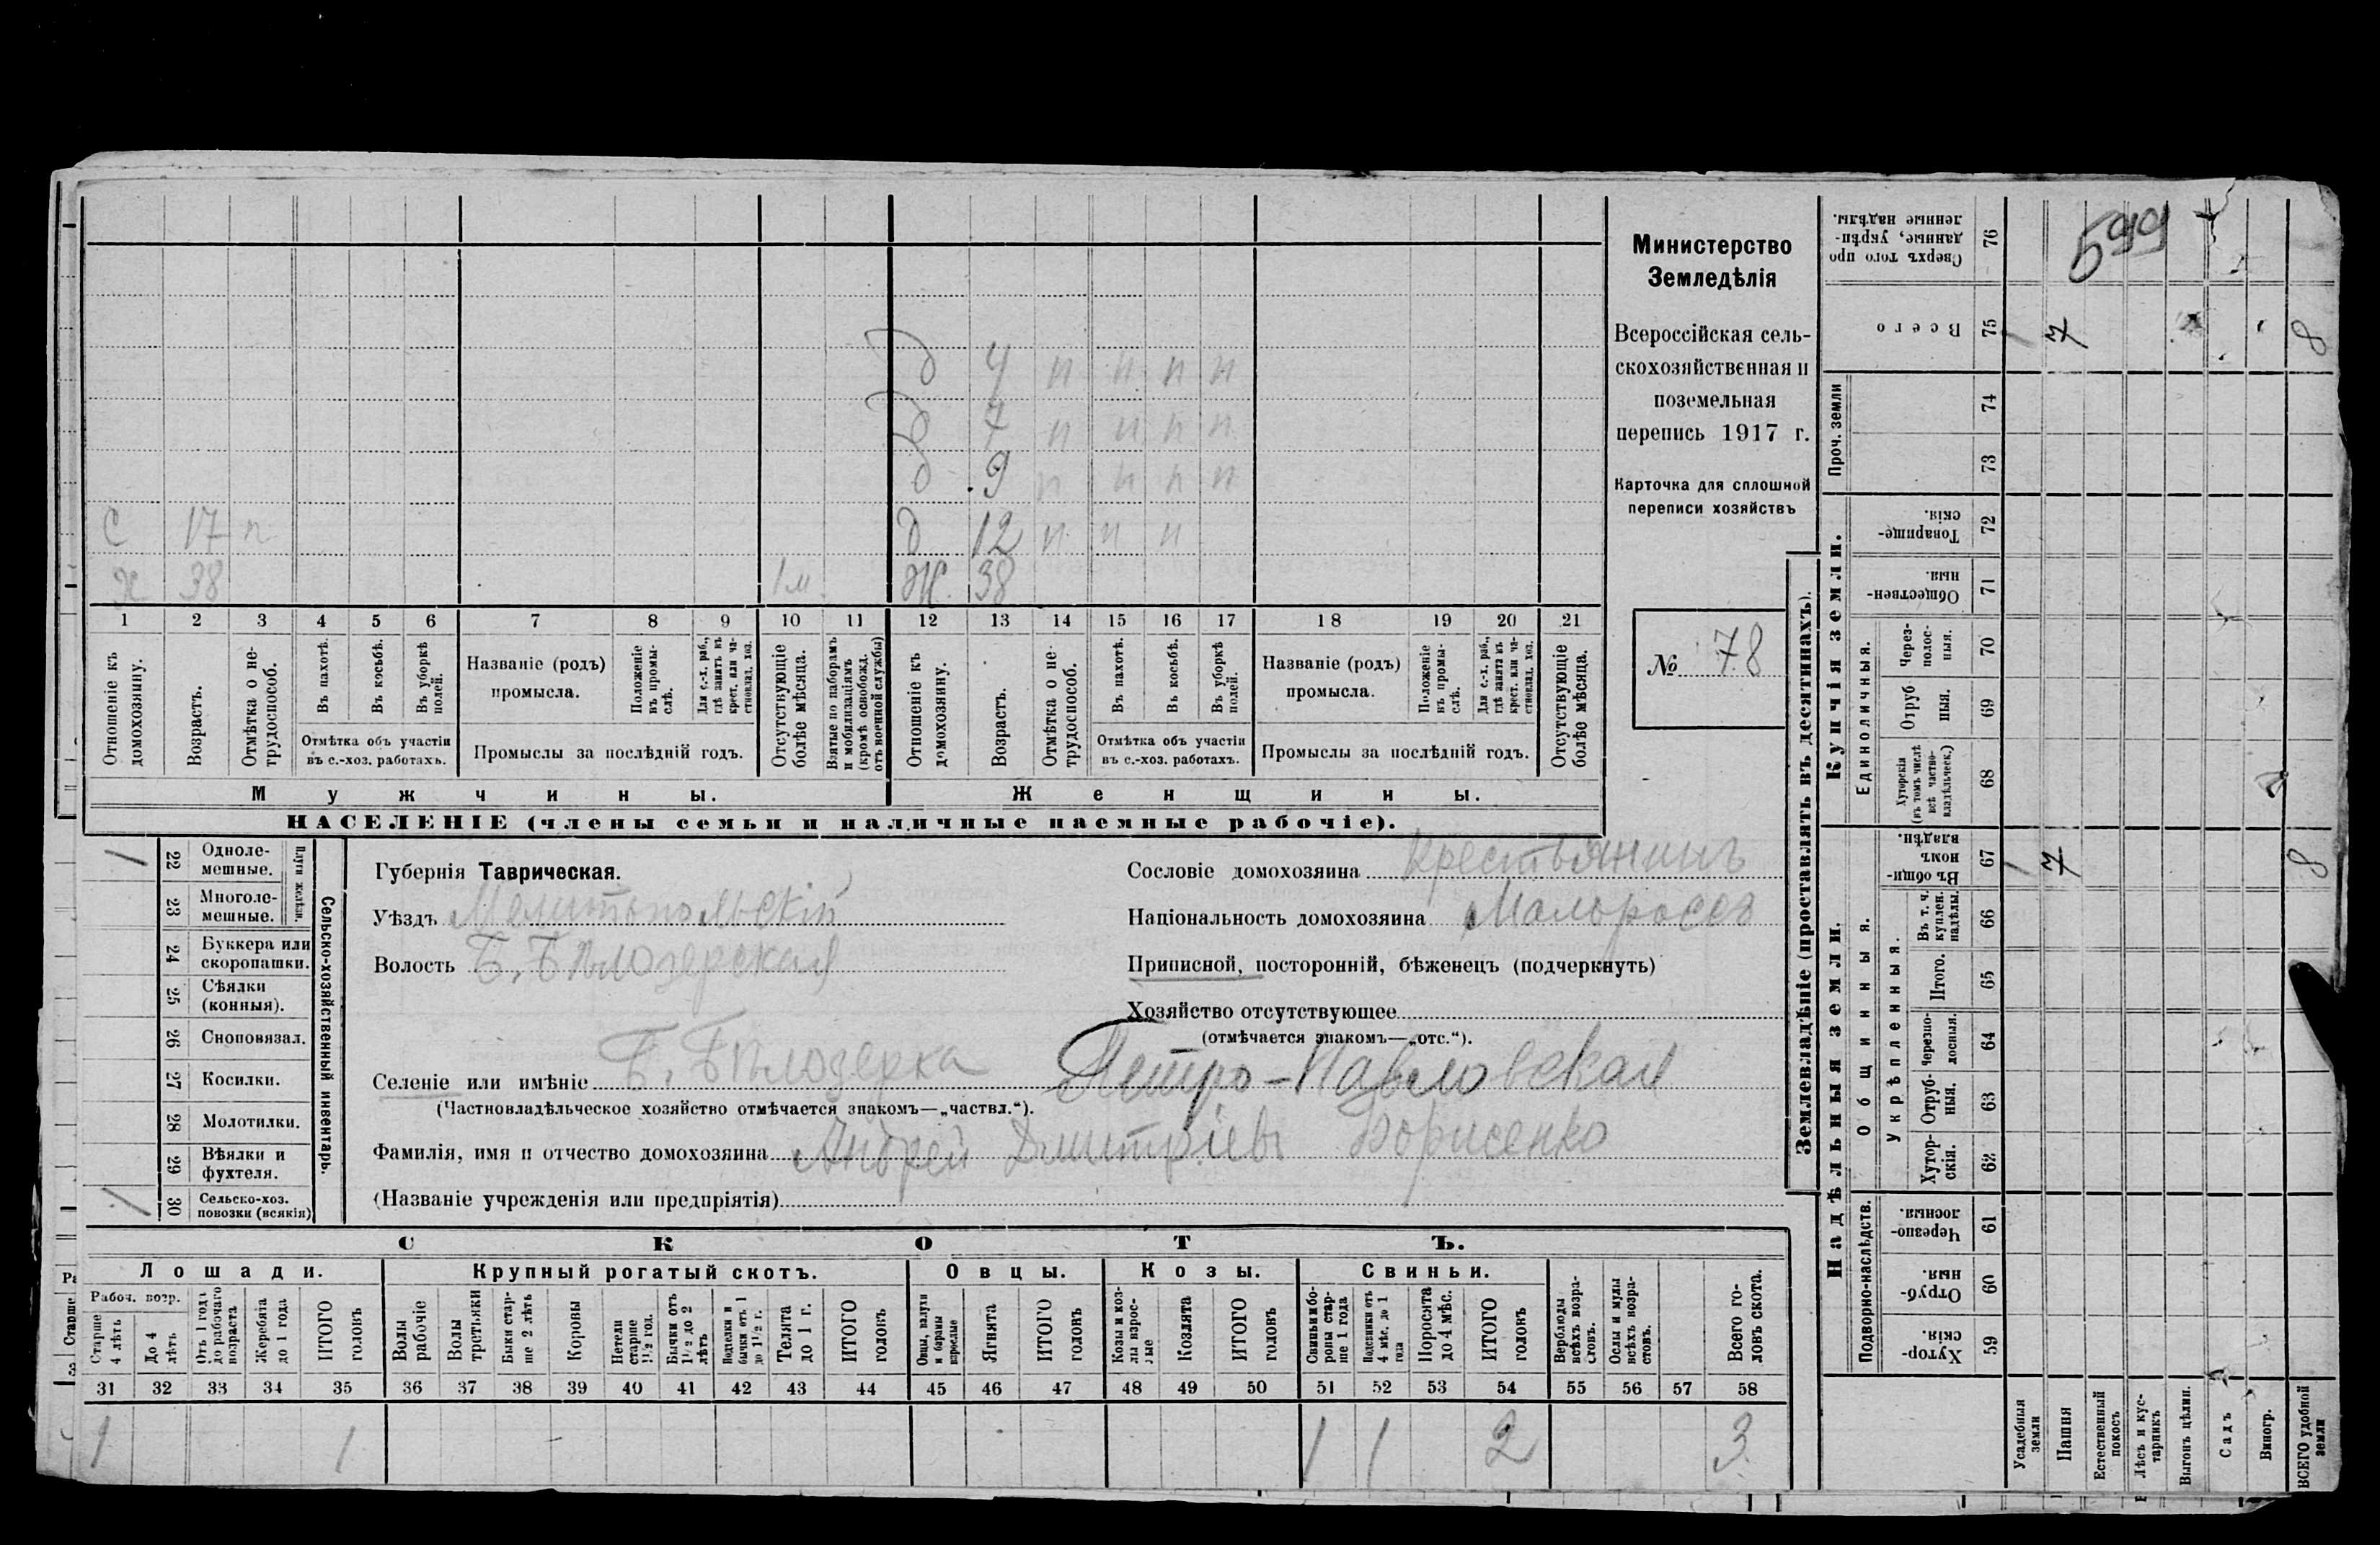 599
Министерство
Земледѣлія
Всероссійская сель-
скохозяйственная и
поземельная
перепись 1917 г.
Карточка для сплошной
переписи хозяйствъ
№ 78
д 4 н н н н
д 7 н н н н
д 9 н н н н
С 17 н д 12 н н н
Х 38 1м. Ж. 38
1 2 3 4 5 6 7 8 9 10 11 12 13 14 15 16 17 18 19 20 21
Отношеніе къ домохозяину.
Возрастъ.
Отмѣтка о не-трудоспособ.
Въ пахотѣ.
Въ косьбѣ.
Въ уборкѣ полей.
Отмѣтка объ участіи
въ с.-хоз. работахъ.
Названіе (родъ)
промысла.
Положеніе въ промы-слѣ.
Для с.-х. раб., гдѣ занятъ въ крест. или ча-стновлад. хоз.
Промыслы за послѣдній годъ.
Отсутствующіе болѣе мѣсяца.
Взятые по наборамъ и мобилизаціямъ (кромѣ освобожд. отъ военной службы)
Отношеніе къ домохозяину.
Возрастъ.
Отмѣтка о не-трудоспособ.
Въ пахотѣ.
Въ косьбѣ.
Въ уборкѣ полей.
Отмѣтка объ участіи
въ с.-хоз. работахъ.
Названіе (родъ)
промысла.
Положеніе въ промы-слѣ.
Для с.-х. раб., гдѣ занята въ крест. или ча-стновлад. хоз.
Промыслы за послѣдній годъ.
Отсутствующіе болѣе мѣсяца.
Мужчины. Женщины.
НАСЕЛЕНІЕ (члены семьи и наличные наемные рабочіе).
Сельско-хозяйственный инвентарь.
Плуги желѣзн.
1 22 Одноле-мешные.
23 Многоле-мешные.
24 Буккера или скоропашки.
25 Сѣялки (конныя).
26 Сноповязал.
27 Косилки.
28 Молотилки.
29 Вѣялки и фухтеля.
1 30 Сельско-хоз. повозки (всякія)
Губернія Таврическая.
Уѣздъ Мелитопольскій
Волость Б. Бѣлозерская
Сословіе домохозяина Крестьянинъ
Національность домохозяина Малороссъ
Приписной, посторонній, бѣженецъ (подчеркнуть)
Хозяйство отсутствующее
(отмѣчается знакомъ—„отс.“).
Селеніе или имѣніе Б. Бѣлозерка Петро-Павловская
(Частновладѣльческое хозяйство отмѣчается знакомъ—„частвл.“).
Фамилія, имя и отчество домохозяина Андрей Дмитріевъ Борисенко
(Названіе учрежденія или предпріятія)
СКОТЪ.
Лошади. Крупный рогатый скотъ. Овцы. Козы. Свиньи.
Рабоч. возр.
Старше 4 лѣтъ
До 4 лѣтъ
Отъ 1 года до рабочаго возраста
Жеребята до 1 года
ИТОГО головъ
Волы рабочіе
Волы третьяки
Быки стар-ше 2 лѣтъ
Коровы
Нетели старше 1½ год.
Бычки отъ 1½ до 2 лѣтъ
Подтелки и бычки отъ 1 до 1½ г.
Телята до 1 г.
ИТОГО головъ
Овцы, валухи и бараны взрослые
Ягнята
ИТОГО головъ
Козы и коз-лы взрос-лые
Козлята
ИТОГО головъ
Свиньи и бо-ровы стар-ше 1 года
Подсвинки отъ 4 мѣс. до 1 года
Поросята до 4 мѣс.
ИТОГО головъ
Верблюды всѣхъ возра-стовъ.
Ослы и мулы всѣхъ возра-стовъ.
Всего го-ловъ скота.
31 32 33 34 35 36 37 38 39 40 41 42 43 44 45 46 47 48 49 50 51 52 53 54 55 56 57 58
1 1 1 1 2 3
Землевладѣніе (проставлять въ десятинахъ).
Надѣльныя земли.
Купчія земли.
Проч. земли
Подворно-наслѣдств.
Общинныя.
Укрѣпленныя.
Единоличныя.
Сверхъ того про данные, укрѣп-ленные надѣлы. 76
Всего 75 1 7 8
74
73
Товарище-скія. 72
Обществен-ныя. 71
Через-полос-ныя. 70
Отруб ныя. 69
Хуторскія (въ томъ числѣ всѣ частно-владѣльческ.) 68
Въ общи-номъ владѣн. 67 1 7 8
Въ т. ч. куплен. надѣлы. 66
Итого. 65
Черезпо-лосныя. 64
Отруб-ныя. 63
Хутор-скія. 62
Черезпо-лосныя. 61
Отруб-ныя. 60
Хутор-скія. 59
Усадебныя земли
Пашня
Естественный покосъ
Лѣсъ и кус-тарникъ
Выгонъ цѣлин.
Садъ
Виногр.
ВСЕГО удобной земли